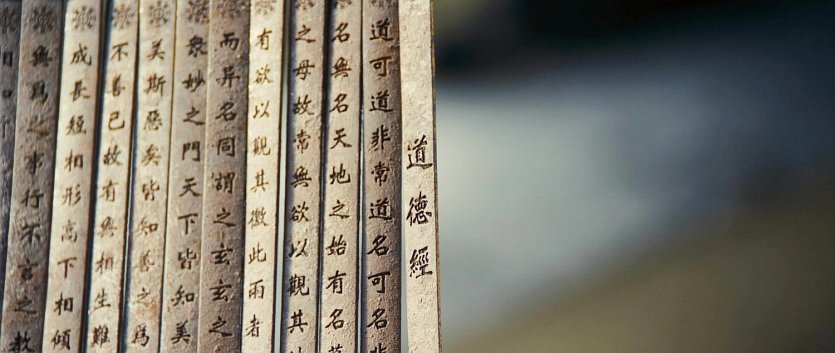 道德經
道可道非常道名可名非
名無名天地之始有名
之母故常無欲以觀其
有欲以觀其徼此兩者
而异名同謂之玄玄之
衆妙之門天下皆知美
美斯惡矣皆知善之爲
不善已故有無相生難
成長短相形高下相傾
無爲之事行不言之教